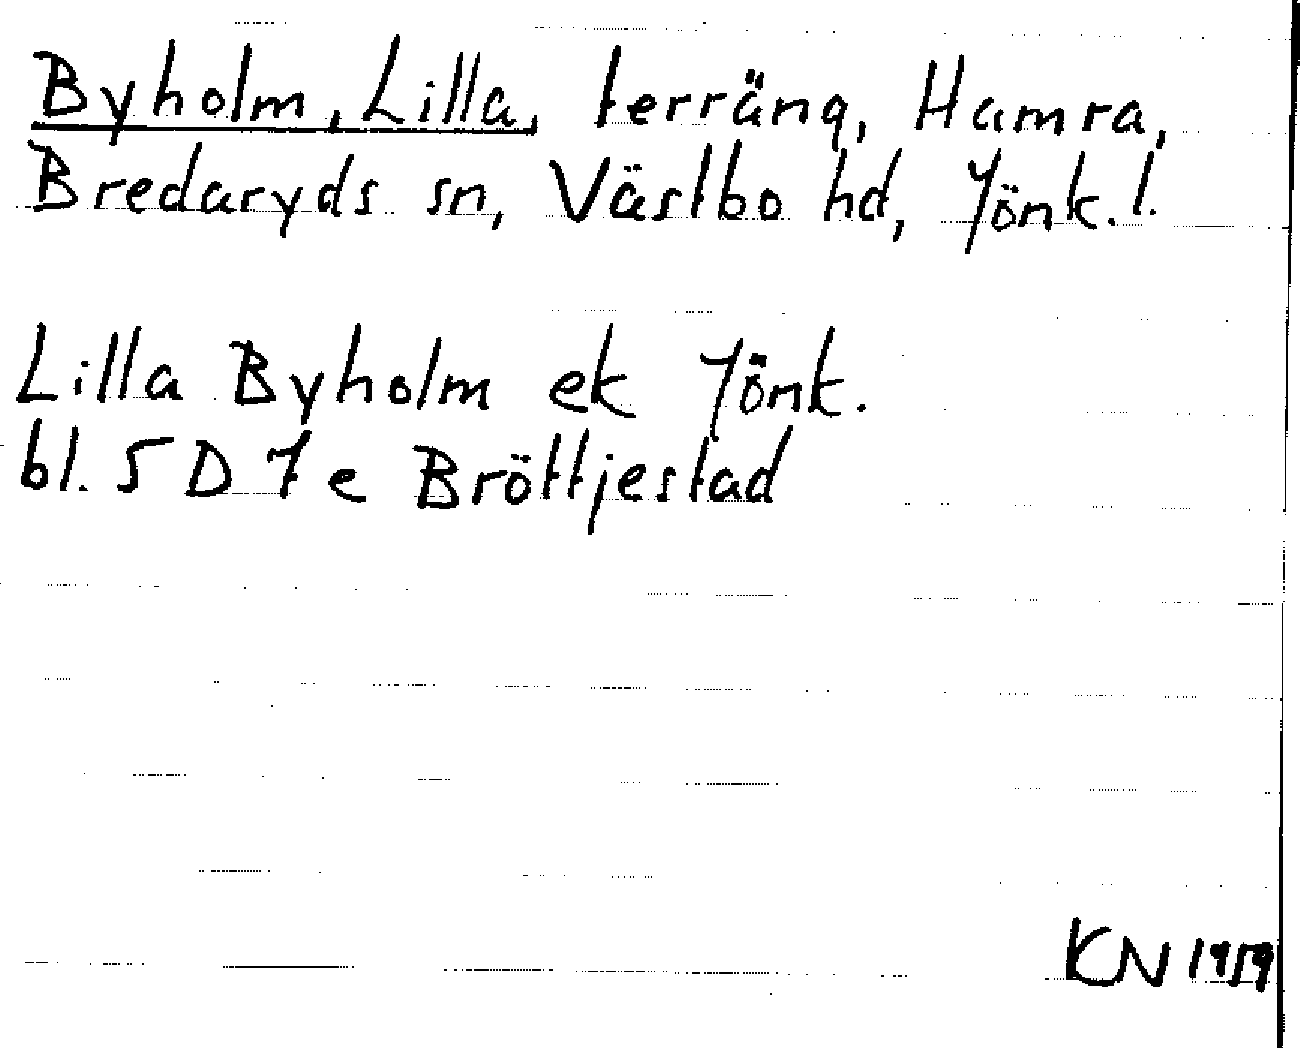 Byholm, Lilla, terräng, Hamra,
Bredaryds sn, Västbo hd, Jönk. l.
Lilla Byholm ek Jönk.
bl. 5 D 7 e Bröttjestad
KN 1959